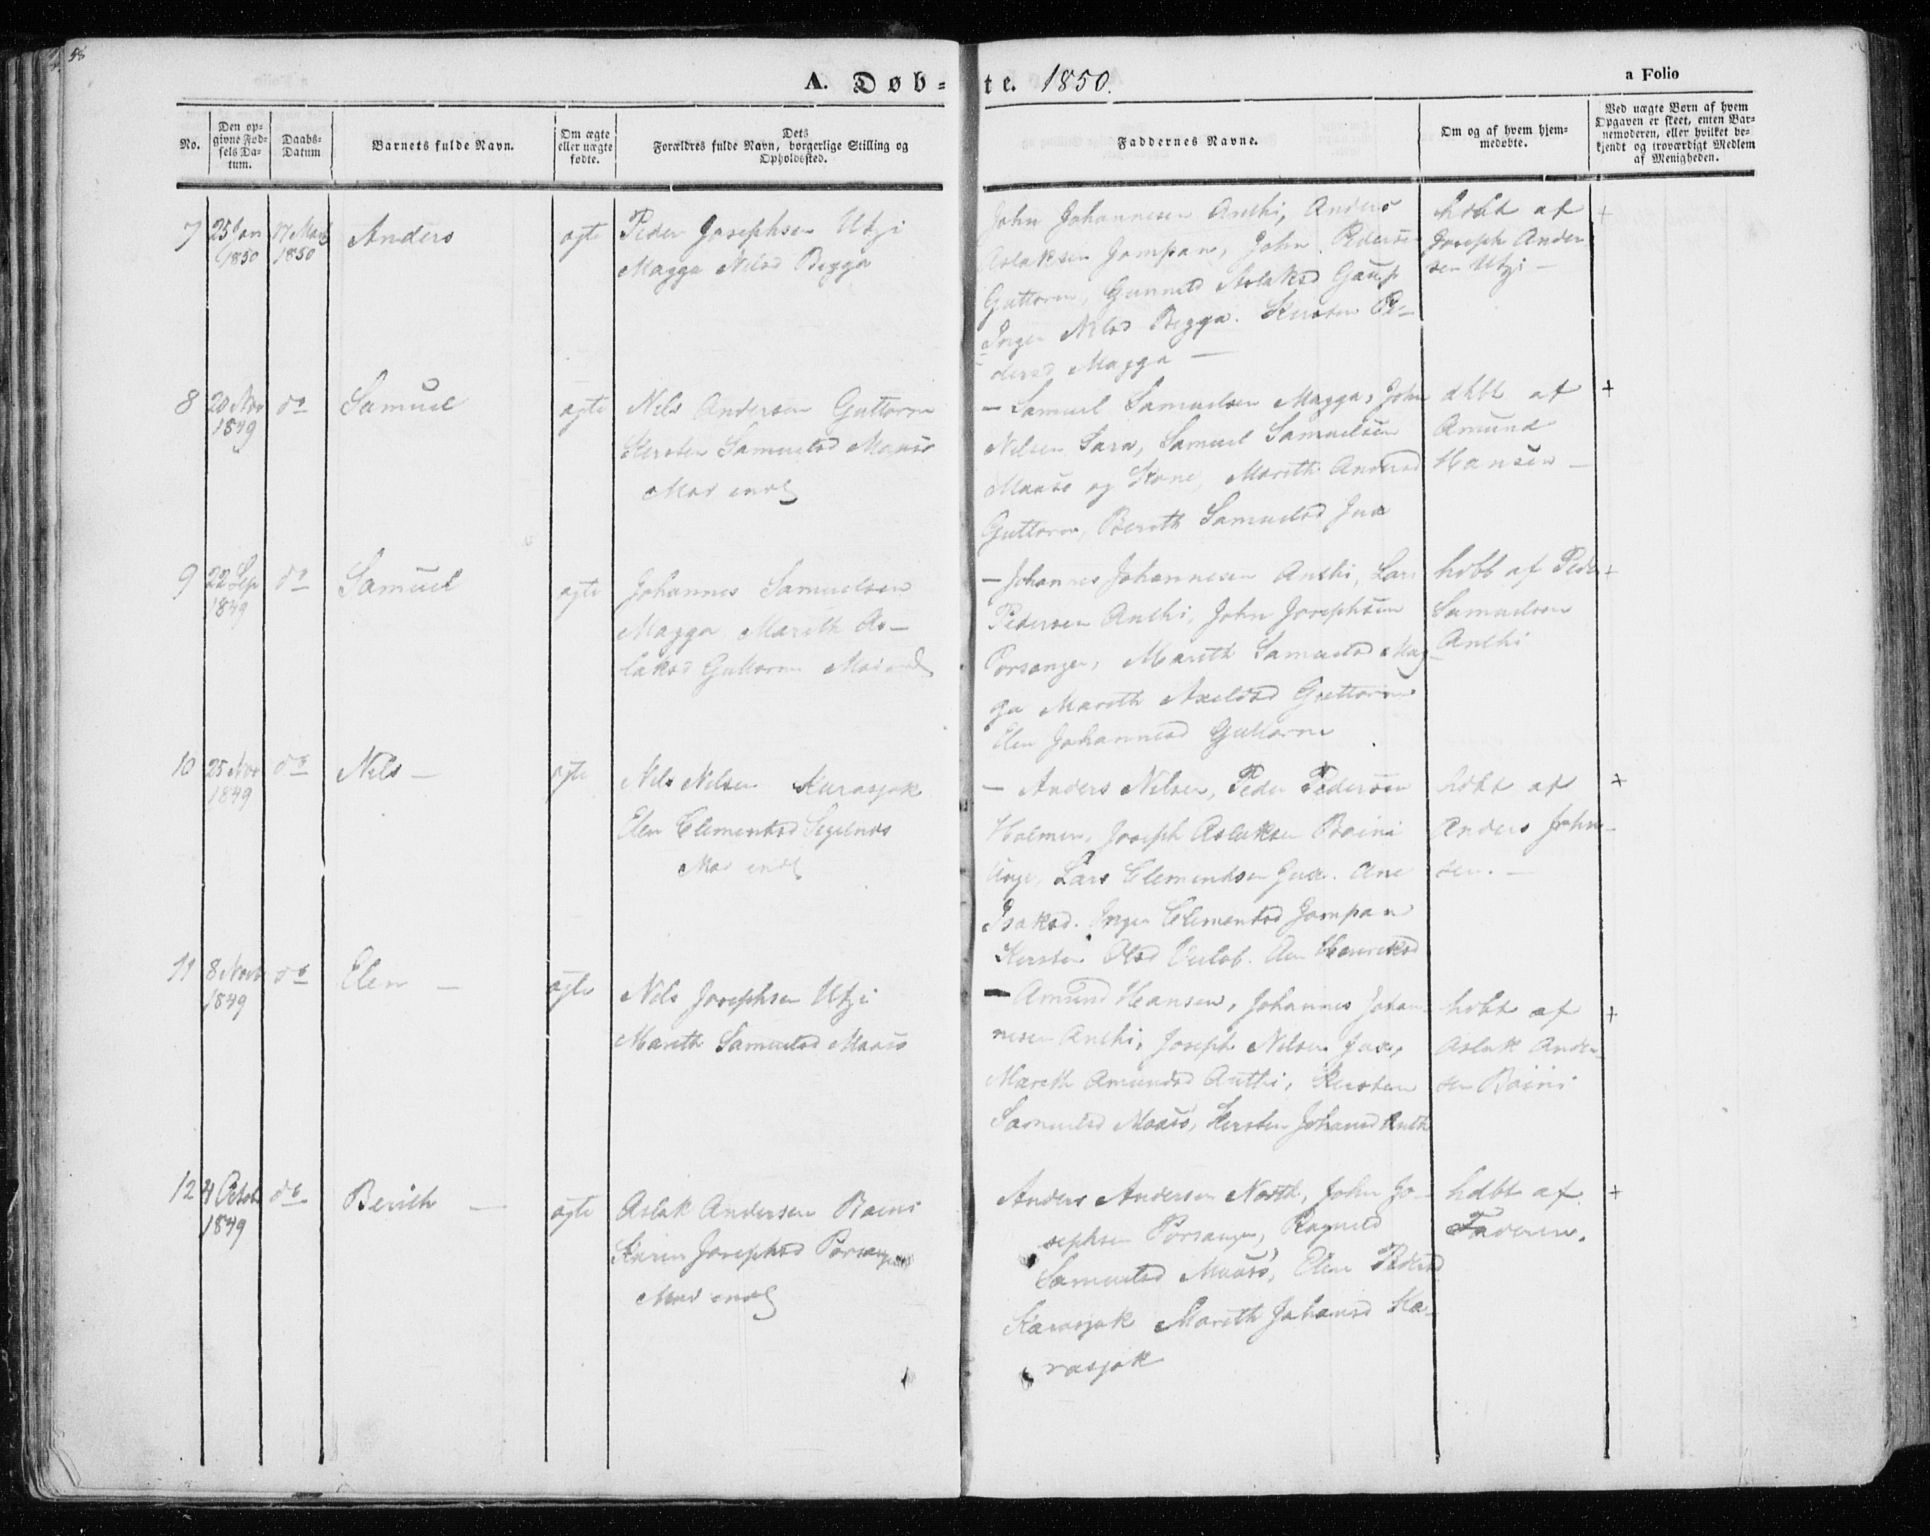 58
A. Døb-te. 1850.
a Folio
No.
Den opgivne Fødsels Datum.
Daabs-Datum
Barnets fulde Navn.
Om ægte eller uægte fødte.
Dets Forældres fulde Navn, borgerlige Stilling og Opholdssted.
Faddernes Navne.
Om og af hvem hjemmedøbte.
Ved uægte Børn af hvem Opgaven er skeet, enten Barnemoderen, eller hvilket bekjendt og troværdigt Medlem af Menigheden.
7
25 Jan
1850
17 Marts
1850
Anders
ægte
Peder Josephsen Utzi
Magga Nilsd Bigga
John Johannesen Anthi, Anders
Aslaksen Jompan, John Pedersen
Guttorm, Gunnild Aslaksd Gaup
Inger Nilsd Bigga. Kirsten Pe-
dersd Magga —
hdbt af
Joseph Ander
sen Utzi —
+
8
20 Nov
1849
do
Samuel
ægte
Nils Andersen Guttorm
Kirsten Samuelsd Maaso
Mod indl
— Samuel Samuelsen Magga, John
Nilsen Sara, Samuel Samuelsen
Maaso og Kone, Marith Andersd
Guttorm, Berith Samuelsd Jux
dbt af
Amund
Hansen —
+
9
22 Sep
1849
do
Samuel
ægte
Johannes Samuelsen
Magga Marith As-
laksd Guttorm Mod indl
— Johannes Johannesen Anthi, Lars
Pedersen Anthi, John Josephsen
Porsanger, Marith Samuelsd Mag-
ga Marith Axelsd Guttorm
Elen Johannesd Guttorm
hdbt af Peder
Samuelsen
Anthi
+
10
25 Nov
1849
do
Nils —
ægte
Nils Nilsen Karasjok
Elen Clementsd
Mod indl
— Anders Nilsen, Peder Pedersen
Holmen, Joseph Aslaksen Baini
Unge, Lars Clementsen Jux. Ane
Isaksd. Inger Clementsd Jompan
Kirsten Olsd Henriksd
hdbt af
Anders John-
sen. —
+
11
8 Novb
1849
do
Elen —
ægte
Nils Josephsen Utzi
Marith Samuelsd Maaso
— Amund Hansen, Johannes Johan-
nesen Anthi, Joseph Nilsen Jux,
Marith Amundsd Anthi, Kirsten
Samuelsd Maaso, Kirsten Johansd Anthi
hdbt af
Aslak Ander-
sen Baini
+
12
4 Octob
1849
do
Berith —
ægte
Aslak Andersen Baini
Karen Josephsd Porsanger
Mod indl
Anders Andersen North, John Jo-
sephsen Porsanger, Ragnild
Samuelsd Maaso, Elen Pedersd
Karasjok Marith Johansd Ka-
rasjok
hdbt af
Faderen.
+